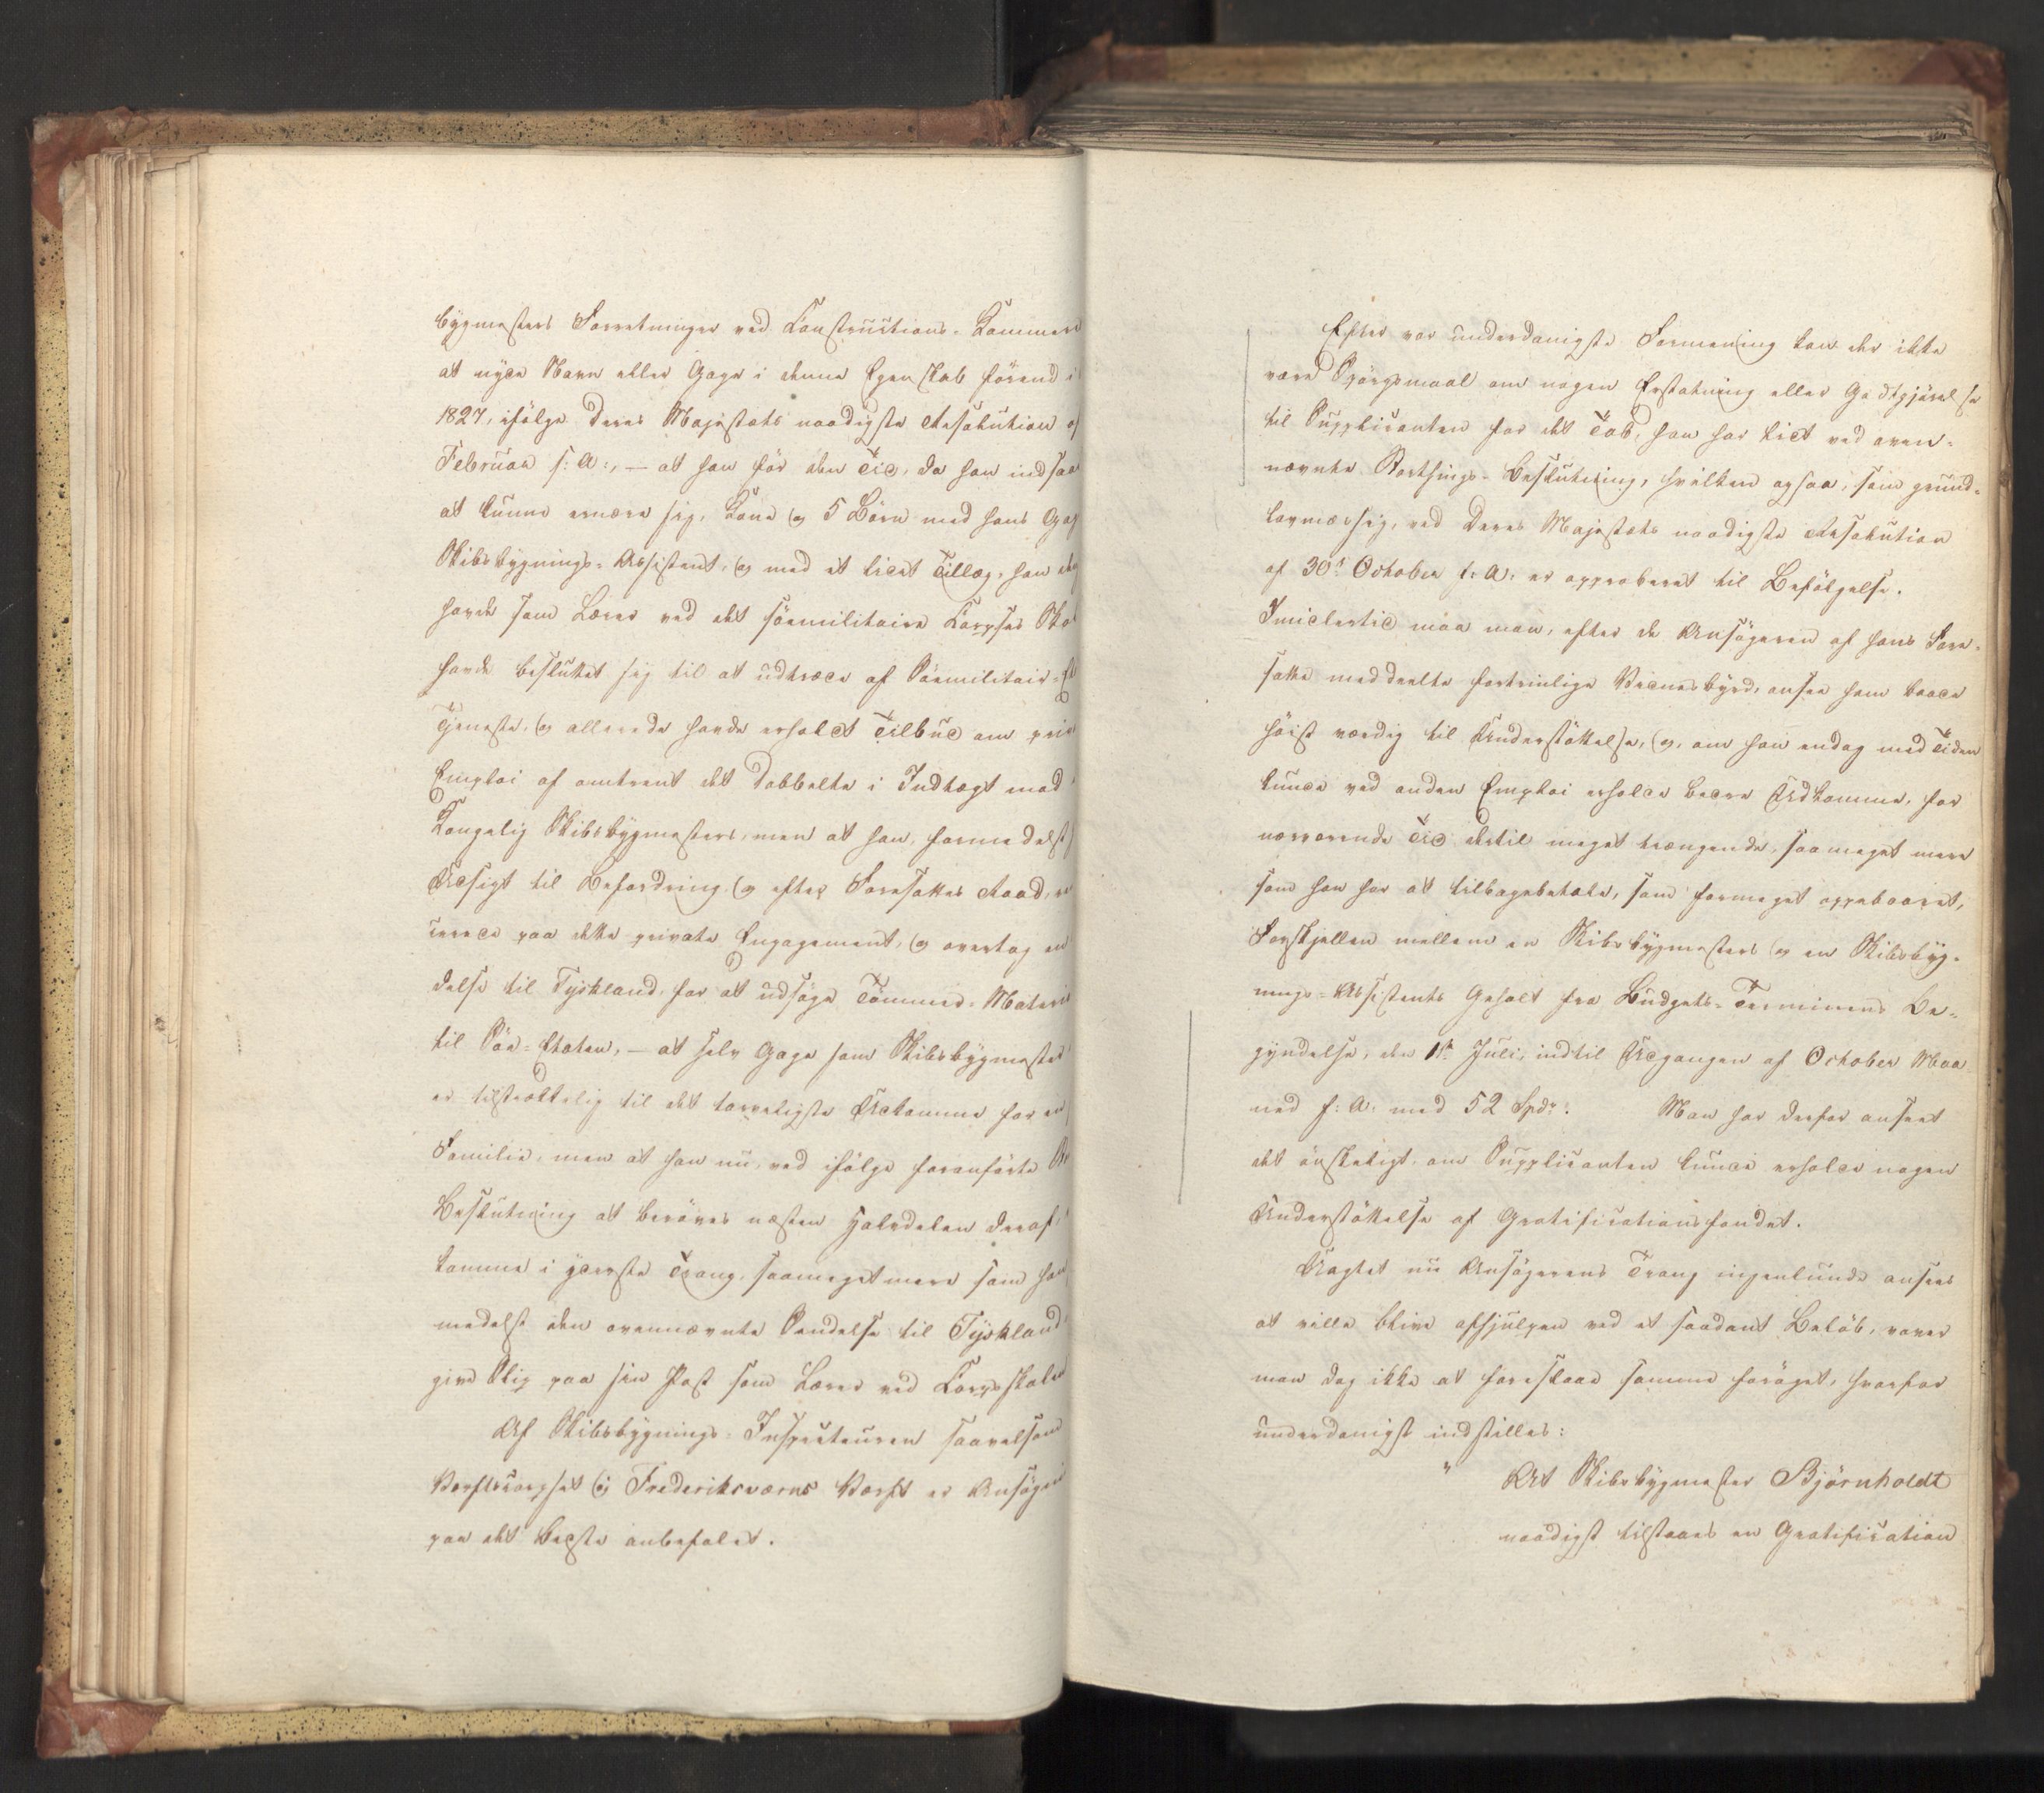 bygmesters Forretninger ved Constructions-Kammere
at nyde Navn eller Gage i denne Egenskab förend i
1827, ifölge Deres Majestæts naadigste Resolution af
Februar s: A:, — at han för den Tid, da han indsaa
at kunne ernære sig, Kone og 5 Börn med hans Gag
Skibsbygnings-Assistent, og med et lidet Tillæg, han
havde som Lærer ved det söemilitaire Corpses Skol
havde besluttet sig til at udtræde af Söemilitair-
Tjeneste, og allerede havde erholdt Tilbud om priv
Emploi af omtrent det Dobbelte i Indtægt mod
Kongelig Skibsbygmesters, men at han, formedelst
Udsigt til Befordring og efter Foresattes Raad,
paa dette private Engagement, og overtog en
delse til Tyskland, for at udsöge Tömmer-Materi
til Söe-Etaten, — at selv Gage som Skibsbygmester
er tilstrækkelig til det tarveligste Udkomme for en
Familie, men at han nu, ved ifölge foranförte
Beslutning at beröves næsten Halvdelen deraf,
komme i yderste Trang, saameget mere som han
medelst den ovennævnte Sendelse til Tyskland
give Slip paa sin Post som Lærer ved Corpsskolen
Af Skibsbygnings-Inspecteuren saavelsom
Værftscorpset og Frederiksværns Værft er Ansögni
paa det Bedste anbefalet.
Efter vor underdanigste Formening kan der ikke
være Spörgsmaal om nogen Erstatning eller Godtgjörelse
til Supplicanten for det Tab, han har lidt ved oven-
nævnte Storthings-Beslutning, hvilken ogsaa, som grund-
lovmæssig, ved Deres Majestæts naadigste Resolution
af 30te October f: A: er approberet til Befölgelse.
Imidlertid maa man, efter de Ansögeren af hans Fore-
satte meddeelte fortrinlige Vidnesbyrd, ansee ham baade
höist værdig til Understöttelse, og, om han endog med Tiden
kunde ved anden Emploi erholde bedre Udkomme, for
nærværende Tid dertil meget trængende, saameget mere
som han har at tilbagebetale, som formeget oppebaaret,
Forskjellen mellem en Skibsbygmesters og en Skibsbyg-
nings-Assistents Gehalt fra Budgets-Terminens Be-
gyndelse, den 1ste Juli, indtil Udgangen af October Maa
ned f: A: med 52 Spdr: Man har derfor anseet
det önskeligt, om Supplicanten kunde erholde nogen
Understöttelse af Gratificationsfondet.
Uagtet nu Ansögerens Trang ingenlunde ansees
at ville blive afhjulpen ved et saadant Belöb, vover
man dog ikke at foreslaae samme foröget, hvorfor
underdanigst indstilles:
" At Skibsbygmester Björnholdt
naadigst tilstaaes en Gratification